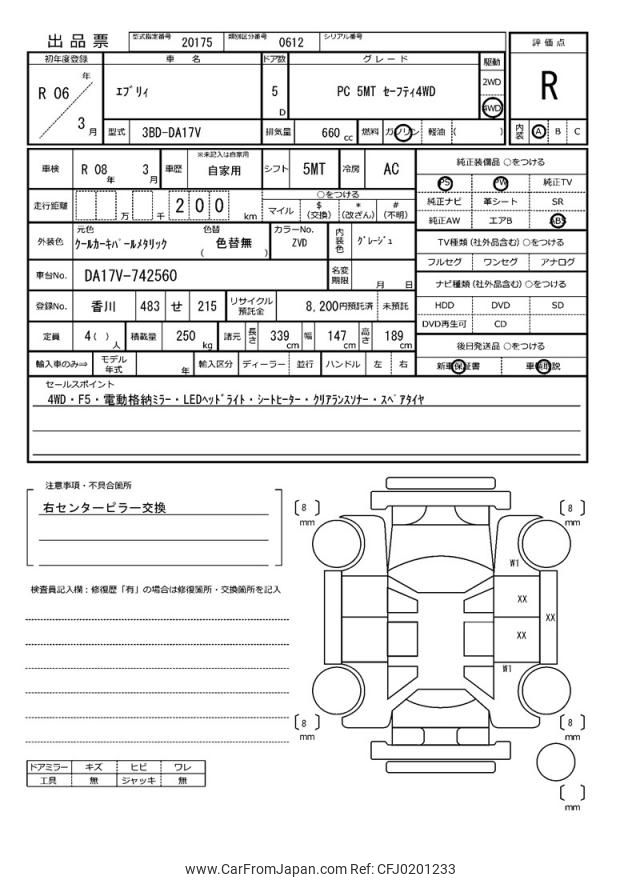 出品票 型式指定番号 20175 類別区分番号 0612 シリアル番号
初年度登録 車名 ドア数 グレード 駆動 評価点
R 06 年 3 月 エブリィ 5 D PC 5MT セーフティ4WD 2WD 4WD R
型式 3BD-DA17V 排気量 660 cc 燃料 ガソリン 軽油 ( ) 内装 A B C
車検 R 08 年 3 月 車歴 ※未記入は自家用 自家用 シフト 5MT 冷房 AC 純正装備品 ○をつける
PS PW 純正TV
走行距離 万 千 200 km ○をつける
マイル $ (交換) * (改ざん) # (不明)
純正ナビ 革シート SR
純正AW エアB ABS
外装色 元色 クールカーキパールメタリック 色替 ( 色替無 ) カラーNo. ZVD 内装色 グレージュ
TV種類 (社外品含む) ○をつける
フルセグ ワンセグ アナログ
車台No. DA17V-742560 名変期限 月 日
ナビ種類 (社外品含む) ○をつける
登録No. 香川 483 せ 215 リサイクル預託金 8,200円預託済 未預託
HDD DVD SD
DVD再生可 CD
定員 4( ) 人 積載量 250 kg 諸元 長さ 339 cm 幅 147 cm 高さ 189 cm
後日発送品 ○をつける
輸入車のみ⇒ モデル年式 年 輸入区分 ディーラー 並行 ハンドル 左 右
新車保証書 車輌取説
セールスポイント
4WD・F5・電動格納ミラー・LEDヘッドライト・シートヒーター・クリアランスソナー・スペアタイヤ
注意事項・不具合箇所
右センターピラー交換
検査員記入欄：修復歴「有」の場合は修復箇所・交換箇所を記入
〔 8 〕 mm
〔 8 〕 mm
W1
XX
XX
XX
W1
〔 8 〕 mm
〔 8 〕 mm
〔 〕 mm
ドアミラー キズ ヒビ ワレ
工具 無 ジャッキ 無
www.CarFromJapan.com Ref: CFJ0201233